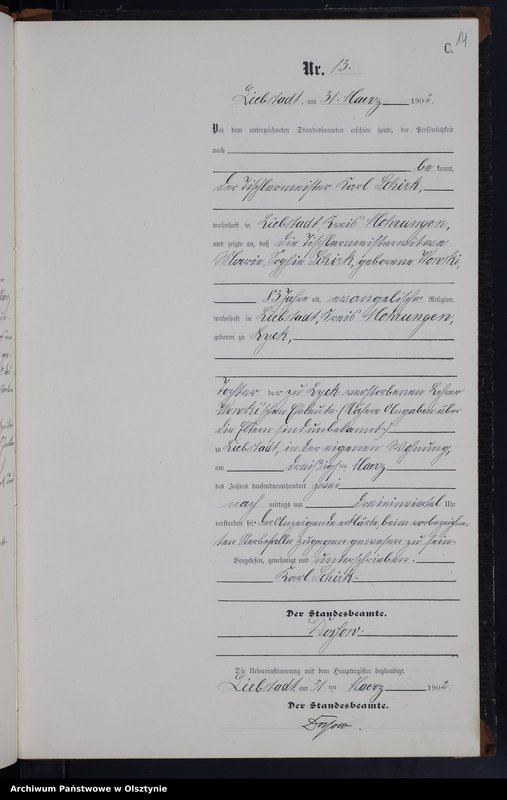 C. 14
Nr. 13.
Liebstadt, am 31. Maerz 1902.
Vor dem unterzeichneten Standesbeamten erschien heute, der Persönlichkeit
nach
be kannt,
der Tischlermeister Karl Schirk,
wohnhaft in Liebstadt, Kreis Mohrungen,
und zeigte an, daß die Tischlermeisterwitwe
Marie, Sophie Schirk, geborene Worski,
83 Jahre alt, evangelischer Religion,
wohnhaft in Liebstadt, Kreis Mohrungen,
geboren zu Lyck,
Tochter der zu Lyck verstorbenen Lehrer
Worski'schen Eheleute (Nähere Angaben über
die Eltern sind unbekannt.)
zu Liebstadt, in der eigenen Wohnung,
am dreißigsten Maerz
des Jahres tausendneunhundert zwei
nach mittags um dreieinviertel Uhr
verstorben sei. Der Anzeigende erklärte, beim vorbezeichne-
ten Sterbefalle zugegen gewesen zu sein.
Vorgelesen, genehmigt und unterschrieben.
Karl Schirk.
Der Standesbeamte.
Die Uebereinstimmung mit dem Hauptregister beglaubigt.
Liebstadt am 31 ten Maerz 1902.
Der Standesbeamte.
Archiwum Państwowe w Olsztynie